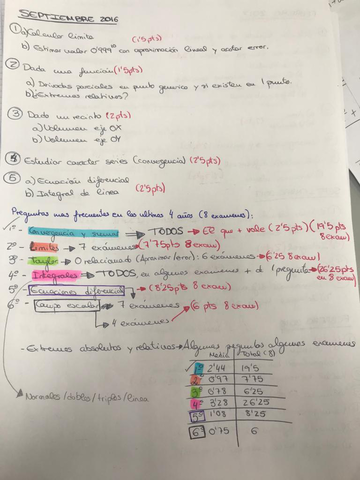 SEPTIEMBRE 2016
① a) Calcular límite (1'5 pts)
b) Estimar valor 0'999¹⁰ con aproximación lineal y acotar error.
② Dada una función (1'5 pts)
a) Derivadas parciales en punto genérico y si existen en 1 punto.
b) Extremos relativos?
③ Dado un recinto (2 pts)
a) Volumen eje OX
b) Volumen eje OY
④ Estudiar caracter series (convergencia) (2'5 pts)
⑤ a) Ecuación diferencial
b) Integral de línea (2'5 pts)
Preguntas más frecuentes en los últimos 4 años (8 exámenes):
1º- Convergencia y series → TODOS → El que + vale (2'5 pts) (19'5 pts 8 exam)
2º- Límites → 7 exámenes → (7'75 pts 8 exam)
3º- Taylor → O relacionado (Aproximar/error): 6 exámenes → (6'25 8 exam)
4º- Integrales → TODOS, en algunos exámenes + d 1 pregunta → (26'25 pts en 8 exam)
5º- Ecuaciones diferencial → (8'25 pts 8 exam)
6º- Campo escalar → 7 exámenes → (6 pts 8 exam)
→ 4 exámenes
- Extremos absolutos y relativos → Algunas preguntas algunos exámenes
Media Total (8)
1º 2'44 19'5
2º 0'97 7'75
3º 0'78 6'25
4º 3'28 26'25
5º 1'03 8'25
6º 0'75 6
Normales/dobles/triples/línea